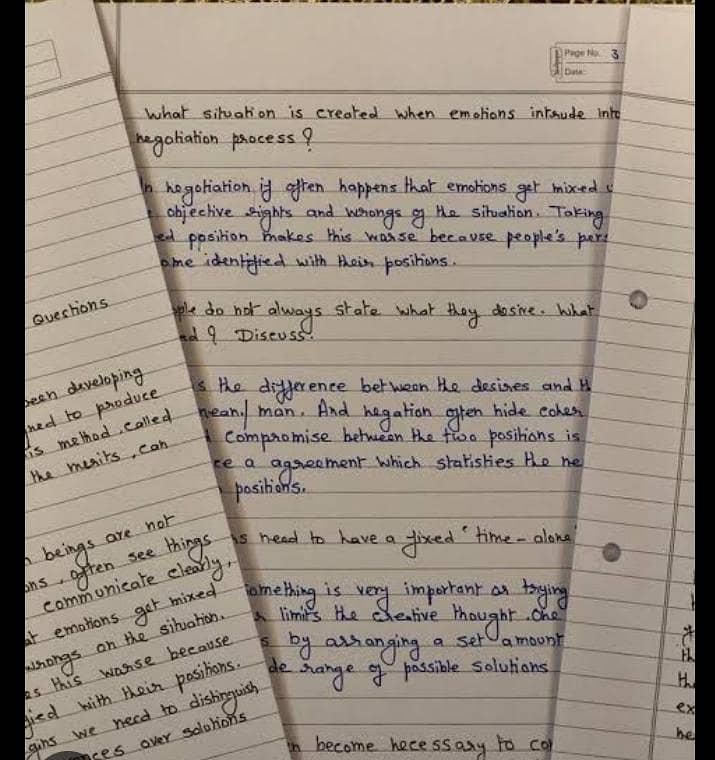 Page No. 3
Date:
What situation is created when emotions intrude into
negotiation process ?
In negotiation if often happens that emotions get mixed
objective rights and wrongs of the situation. Taking
position makes this worse because people's pers
ome identified with their positions.
ple do not always state what they desire. What
ed ? Discuss.
is the difference between the desires and
mean/ man. And negation often hide
Compromise between the two positions is
ce a agreement which statisties the ne
positions.
s need to have a fixed "time - alone"
Something is very important as trying
limits the creative thought. One
by arranging a set amount
de range of possible solutions
become necessary to co
Questions
been developing
ned to produce
is method called
the merits, can
beings are not
ons, often see things
communicate clearly,
at emotions get mixed
wrongs on the situation.
es this worse because
fied with their positions.
gins we need to distinguish
nces over solutions
it
th
th
ex
he